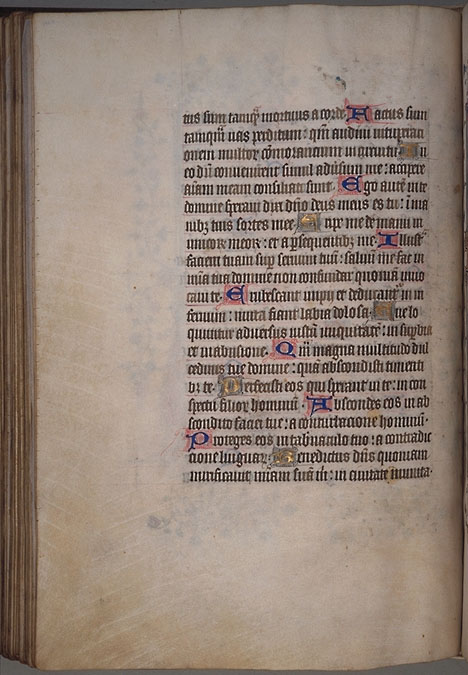 tus sum tamqͣ mortuus a corde. Factus sum
tamquā uas perditum: qm̄ audiui uituperati
onem multoꝝ cōmorantium in circuitu. In
eo dū conuenirent simul aduersum me: accipere
aīam meam consiliati sunt. Ego autē in te
domine speraui dixi deus meus es tu: in ma
nibꝫ tuis sortes mee. Eripe me de manu in
imicoꝝ meoꝝ: et a persequentibꝫ me. Illust̄
faciem tuam super seruum tuum: saluū me fac in
mīa tua domine non confundar quoniā inuo
caui te. Erubescant impii et deducant̄ in in
fernum: muta fiant labia dolosa. Que lo
quuntur aduersus iustū iniquitatē: in supbia
et in abusione. Qm̄ magna multitudo dul
cedinis tue domine: quā abscondisti timenti
bꝫ te. Perfecisti eos qui sperant in te: in con
spectu filioꝝ hominū. Abscondes eos in ab
scondito faciei tue: a conturbatione hominū.
Proteges eos in tabnaculo tuo: a contradic
tione linguaꝝ. Benedictus dn̄s quoniam
mirificauit mīam suā m̄: in ciuitate munita.